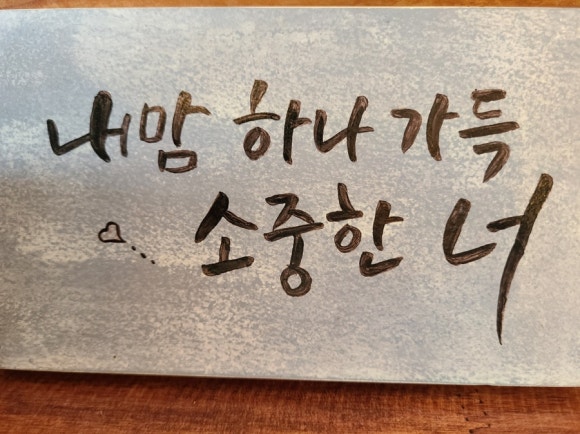 내맘 하나 가득
소중한 너